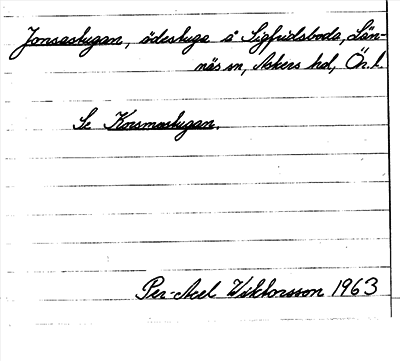 Jonsastugan, ödestuga å Sigfridsboda, Län-
näs sn, Askers hd, Ör. l.
Se Korsmostugan.
Per-Axel Wiktorsson 1963